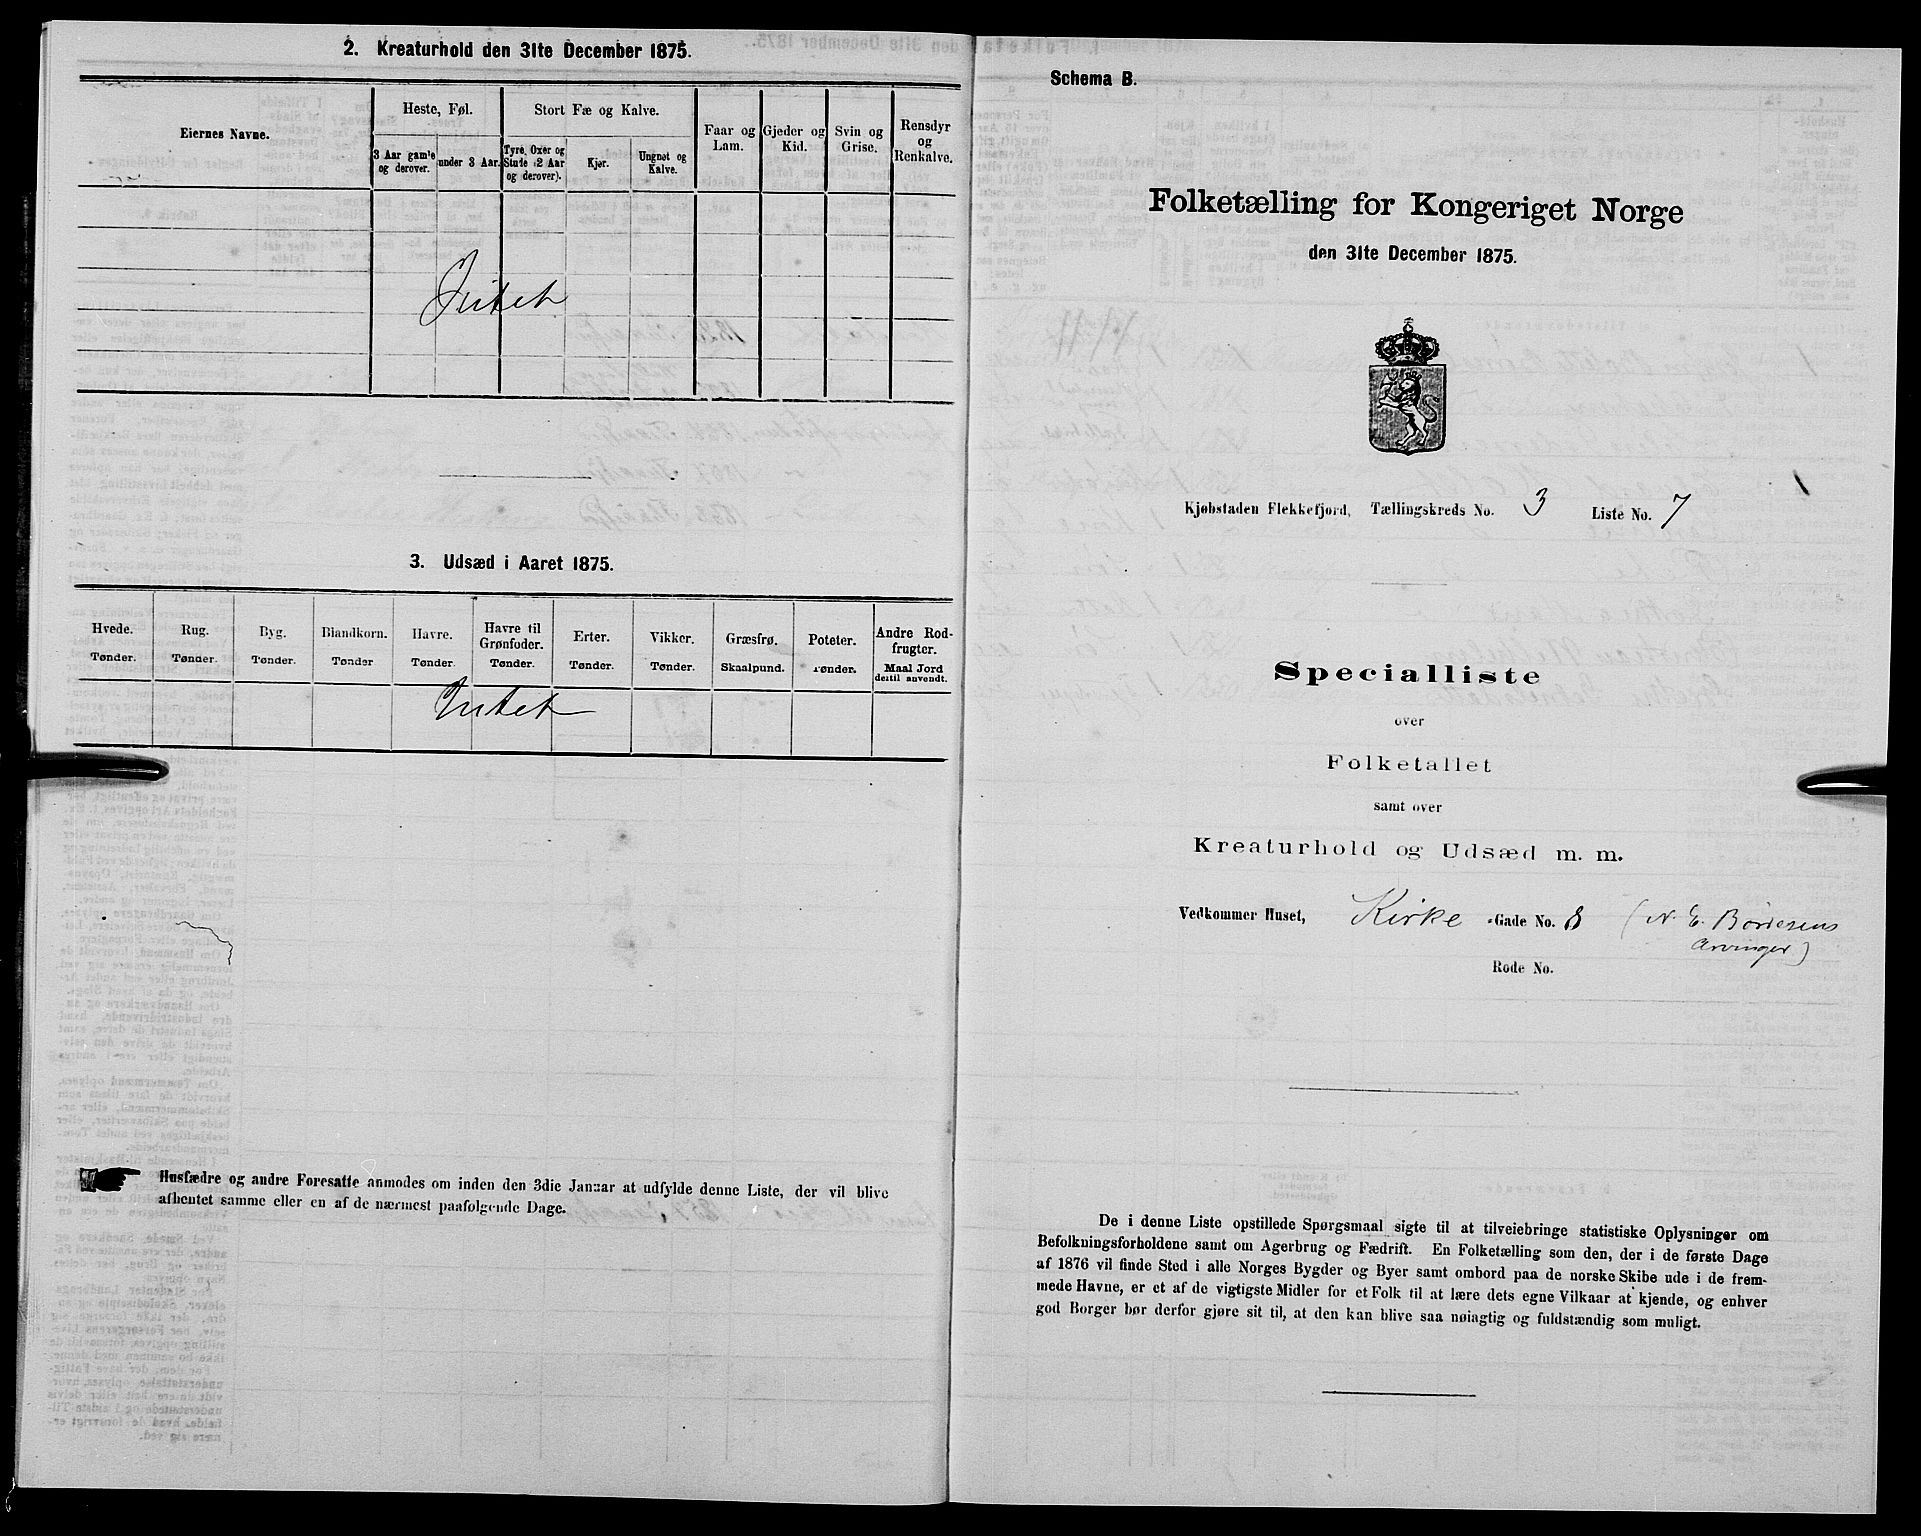 2. Kreaturhold den 31te December 1875.
Eiernes Navne.
Heste, Føl.
Stort Fæ og Kalve.
Faar og
Lam.
Gjeder og
Kid.
Svin og
Grise.
Rensdyr
og
Renkalve.
3 Aar gamle
og derover.
under 3 Aar.
Tyre, Oxer og
Stude (2 Aar
og derover).
Kjør.
Ungnøt og
Kalve.
Intet
3. Udsæd i Aaret 1875.
Hvede.
Tønder.
Rug.
Tønder.
Byg.
Tønder.
Blandkorn.
Tønder
Havre.
Tønder.
Havre til
Grønfoder.
Tønder.
Erter.
Tønder.
Vikker.
Tønder.
Græsfrø.
Skaalpund.
Poteter.
Tønder.
Andre Rod-
frugter.
Maal Jord
dertil anvendt.
Intet
Husfædre og andre Foresatte anmodes om inden den 3die Januar at udfylde denne Liste, der vil blive
afhentet samme eller en af de nærmest paafølgende Dage.
Schema B.
Folketælling for Kongeriget Norge
den 31te December 1875.
Kjøbstaden Flekkefjord, Tællingskreds No. 3 Liste No. 7
Specialliste
over
Folketallet
samt over
Kreaturhold og Udsæd m. m.
Vedkommer Huset, Kirke -Gade No. 8 (N. E. Børresens
Arvinger)
Rode No.
De i denne Liste opstillede Spørgsmaal sigte til at tilveiebringe statistiske Oplysninger om
Befolkningsforholdene samt om Agerbrug og Fædrift. En Folketælling som den, der i de første Dage
af 1876 vil finde Sted i alle Norges Bygder og Byer samt ombord paa de norske Skibe ude i de frem-
mede Havne, er et af de vigtigste Midler for et Folk til at lære dets egne Vilkaar at kjende, og enhver
god Borger bør derfor gjøre sit til, at den kan blive saa nøiagtig og fuldstændig som muligt.